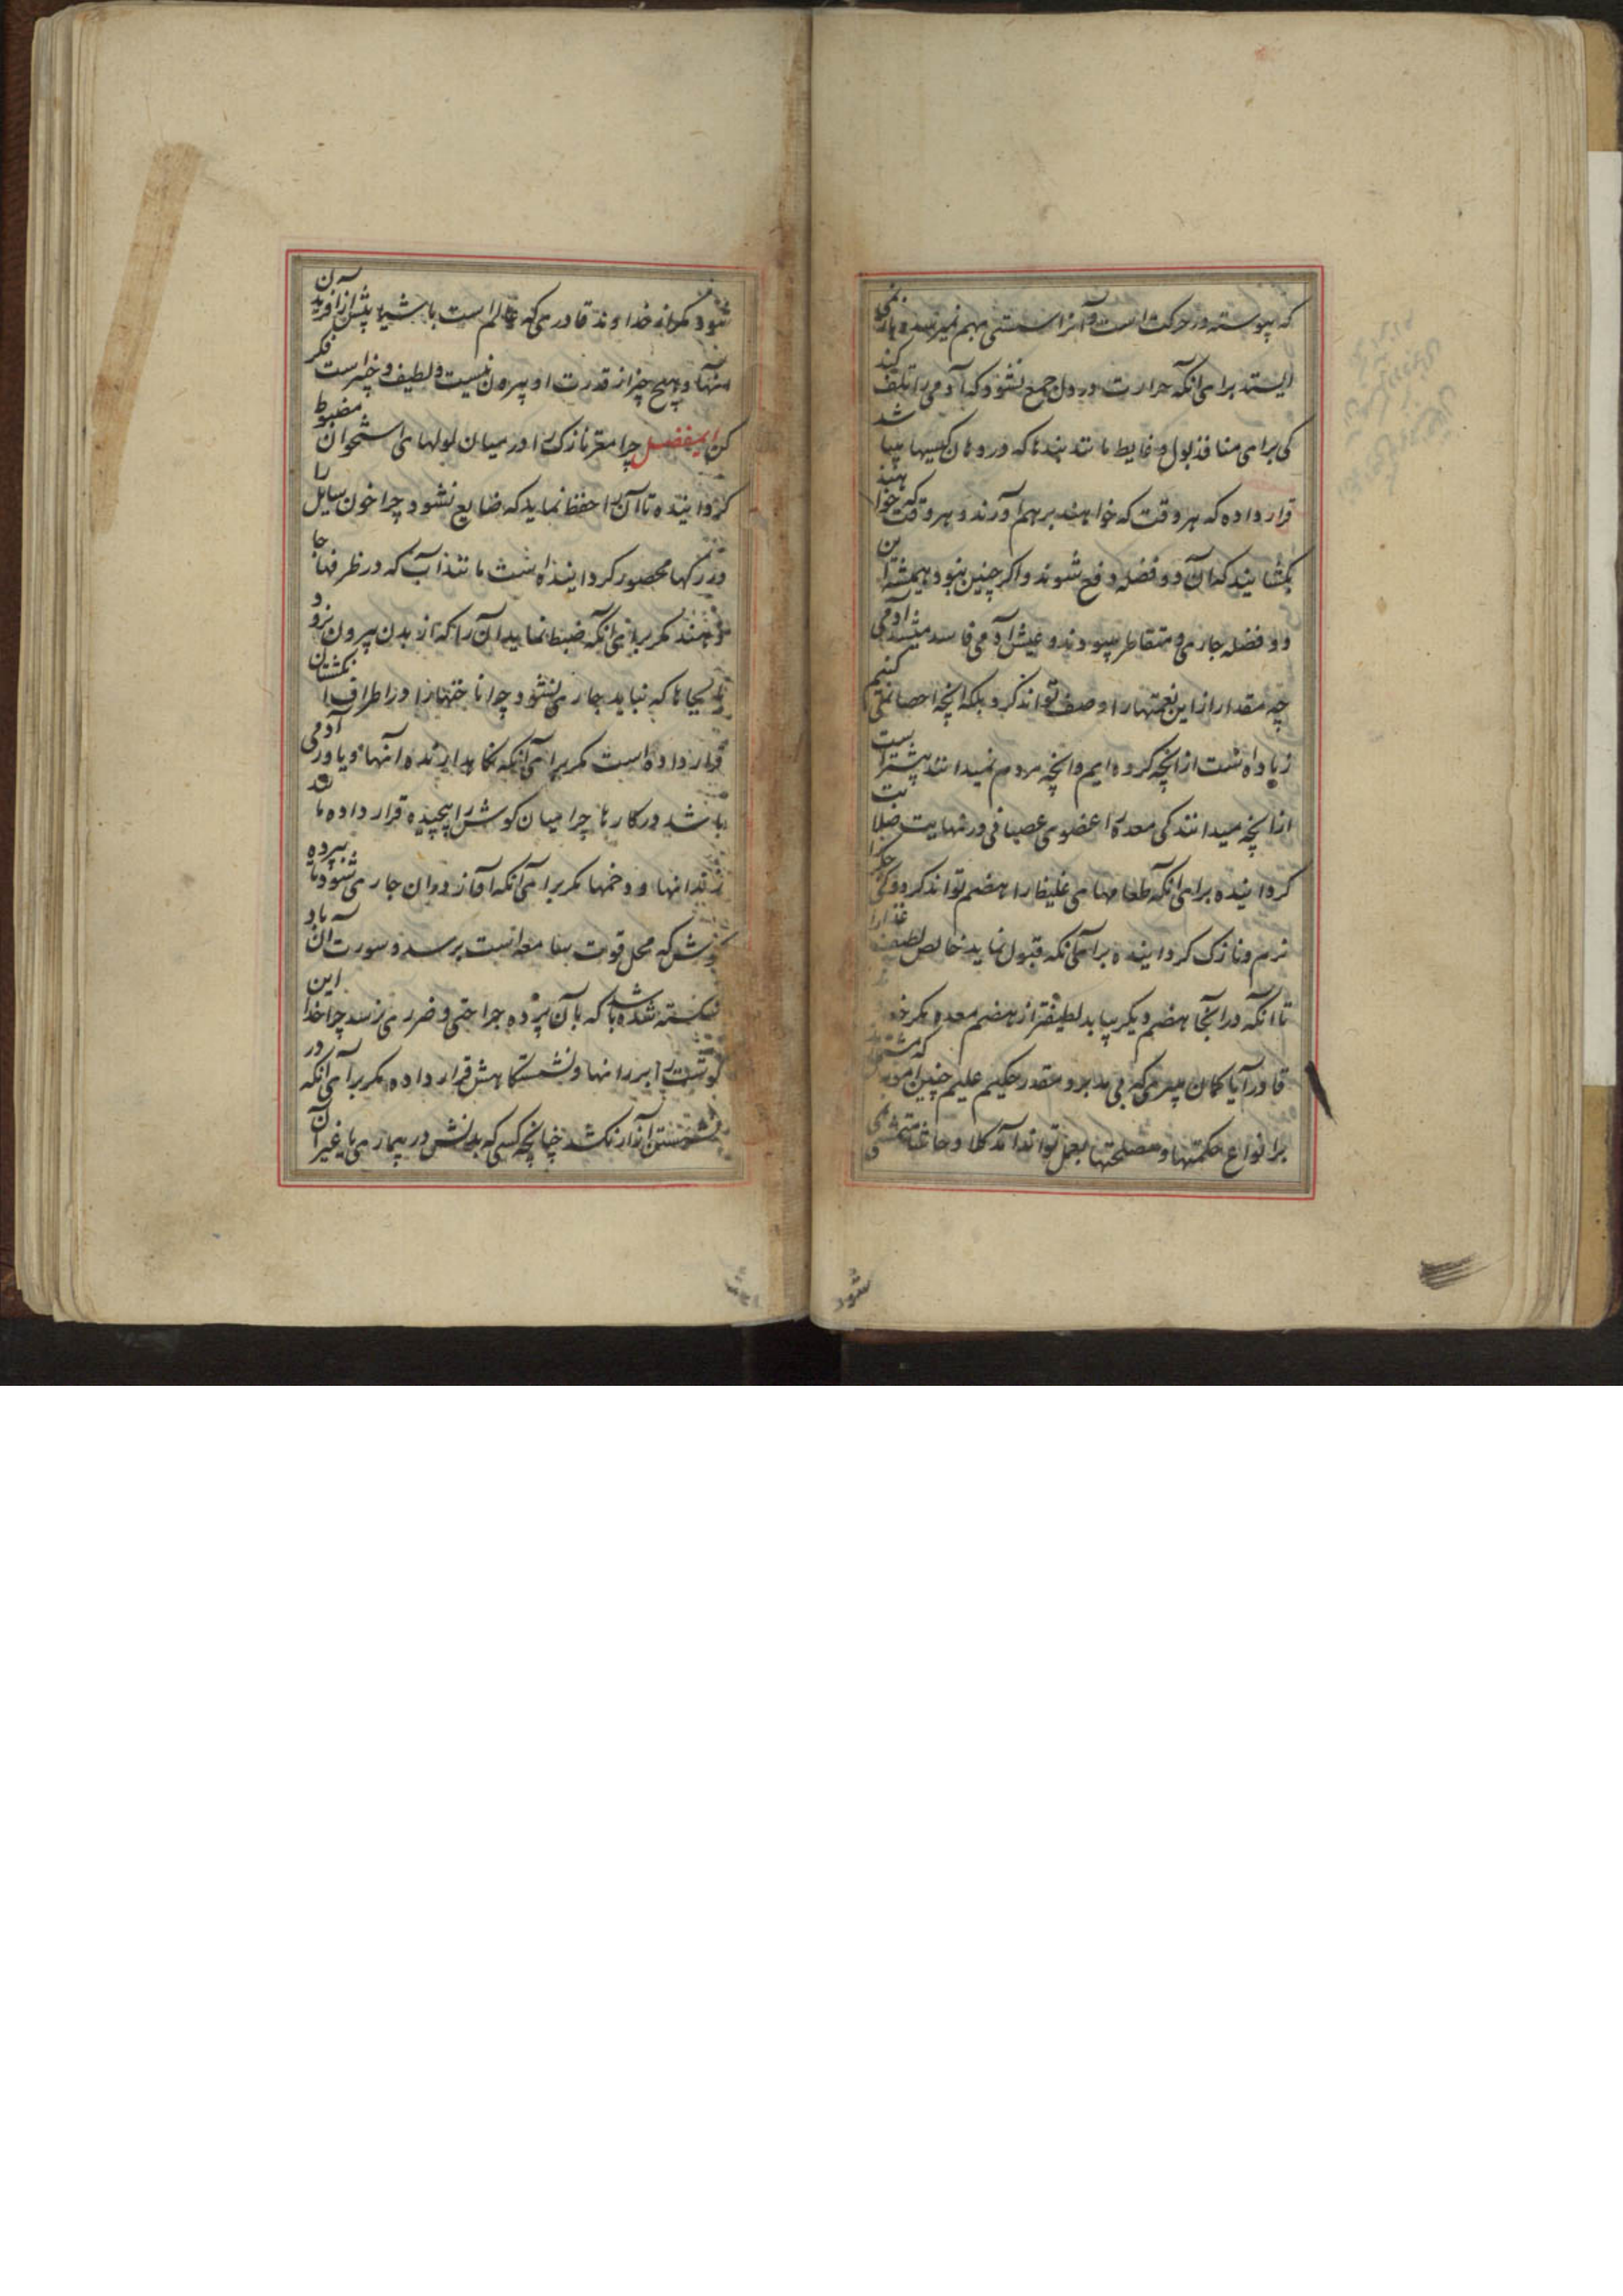 که پیوسته در حرکت است و آنرا سستی بهم نمیرسد و باز نمی
ایستد برای آنکه حرارت در دل جمع نشود که آدمی را تلف کند
کی برای منافذ بول و غایط مانند بندها که در دهان کیسها پیدا شد
قرار داده که هر وقت که خواهند برهم آورند و هر وقت که خواهند
بکشایند که آن دو فضله دفع شوند و اکر چنین نبود همیشه این
دو فضله جاری و متقاطر میبودند و عیش آدمی فاسد میشد آدمی
چه مقدار از این نعمتها را وصف تواند کرد بلکه آنچه احصا نمی کنیم
زیاده است از آنچه کرده ایم و آنچه مردم نمیدانند بیشتر است
از آنچه میدانند کی معده را عضوی عصبانی در نهایت صلابت
کردانیده برای آنکه طعامهای غلیظ را هضم تواند کرد و کی جکر را
نرم و نازک کردانیده برای آنکه قبول نماید خالص لطیف غذا را
تا آنکه در آنجا هضم دیکر بیابد لطیفتر از هضم معده مکر
قادر آیا کمان میبری که بی مدبر و مقدر حکیم علیم چنین امور که مشتمل
بر انواع حکمتها و مصلحتها بعمل تواند آمد کلا و حاشا
شود
شود مکر از خداوند قادری که عالم است باشیا پیش از آفریدن
آنها و هیچ چیز از قدرت او بیرون نیست و لطیف و خبیر است فکر
کن ایمفضل چرا مغز نازک را در میان لولهای استخوان مضبوط
کردانیده تا آن را حفظ نماید که ضایع نشود چرا خون سایل را
در رکها محصور کردانیده است مانند آب که در ظرفها جا
دهند مکر برای آنکه ضبط نماید آن را که از بدن بیرون نرود
بجاها که نباید جاری نشود چرا ناخنها را در اطراف انکشتان
قرار داده است مکر برای آنکه نکاهدارنده آنها و یاور آدمی
باشد در کارها چرا میان کوش را پیچیده قرار داده مانند
زندانها و دخمها مکر برای آنکه آواز در آن جاری شود تا بپرده
کوش که محل قوت سامعه است برسد و سورت آن باد
شکسته شده باشد که بآن پرده جراحتی و ضرری نرسد چرا خدا این
کوشت را بر رانها و نشستکاهش قرار داده مکر برای آنکه در
نشستن آزار نکشد چنانچه کسی که بدنش در بیماری یا غیر آن